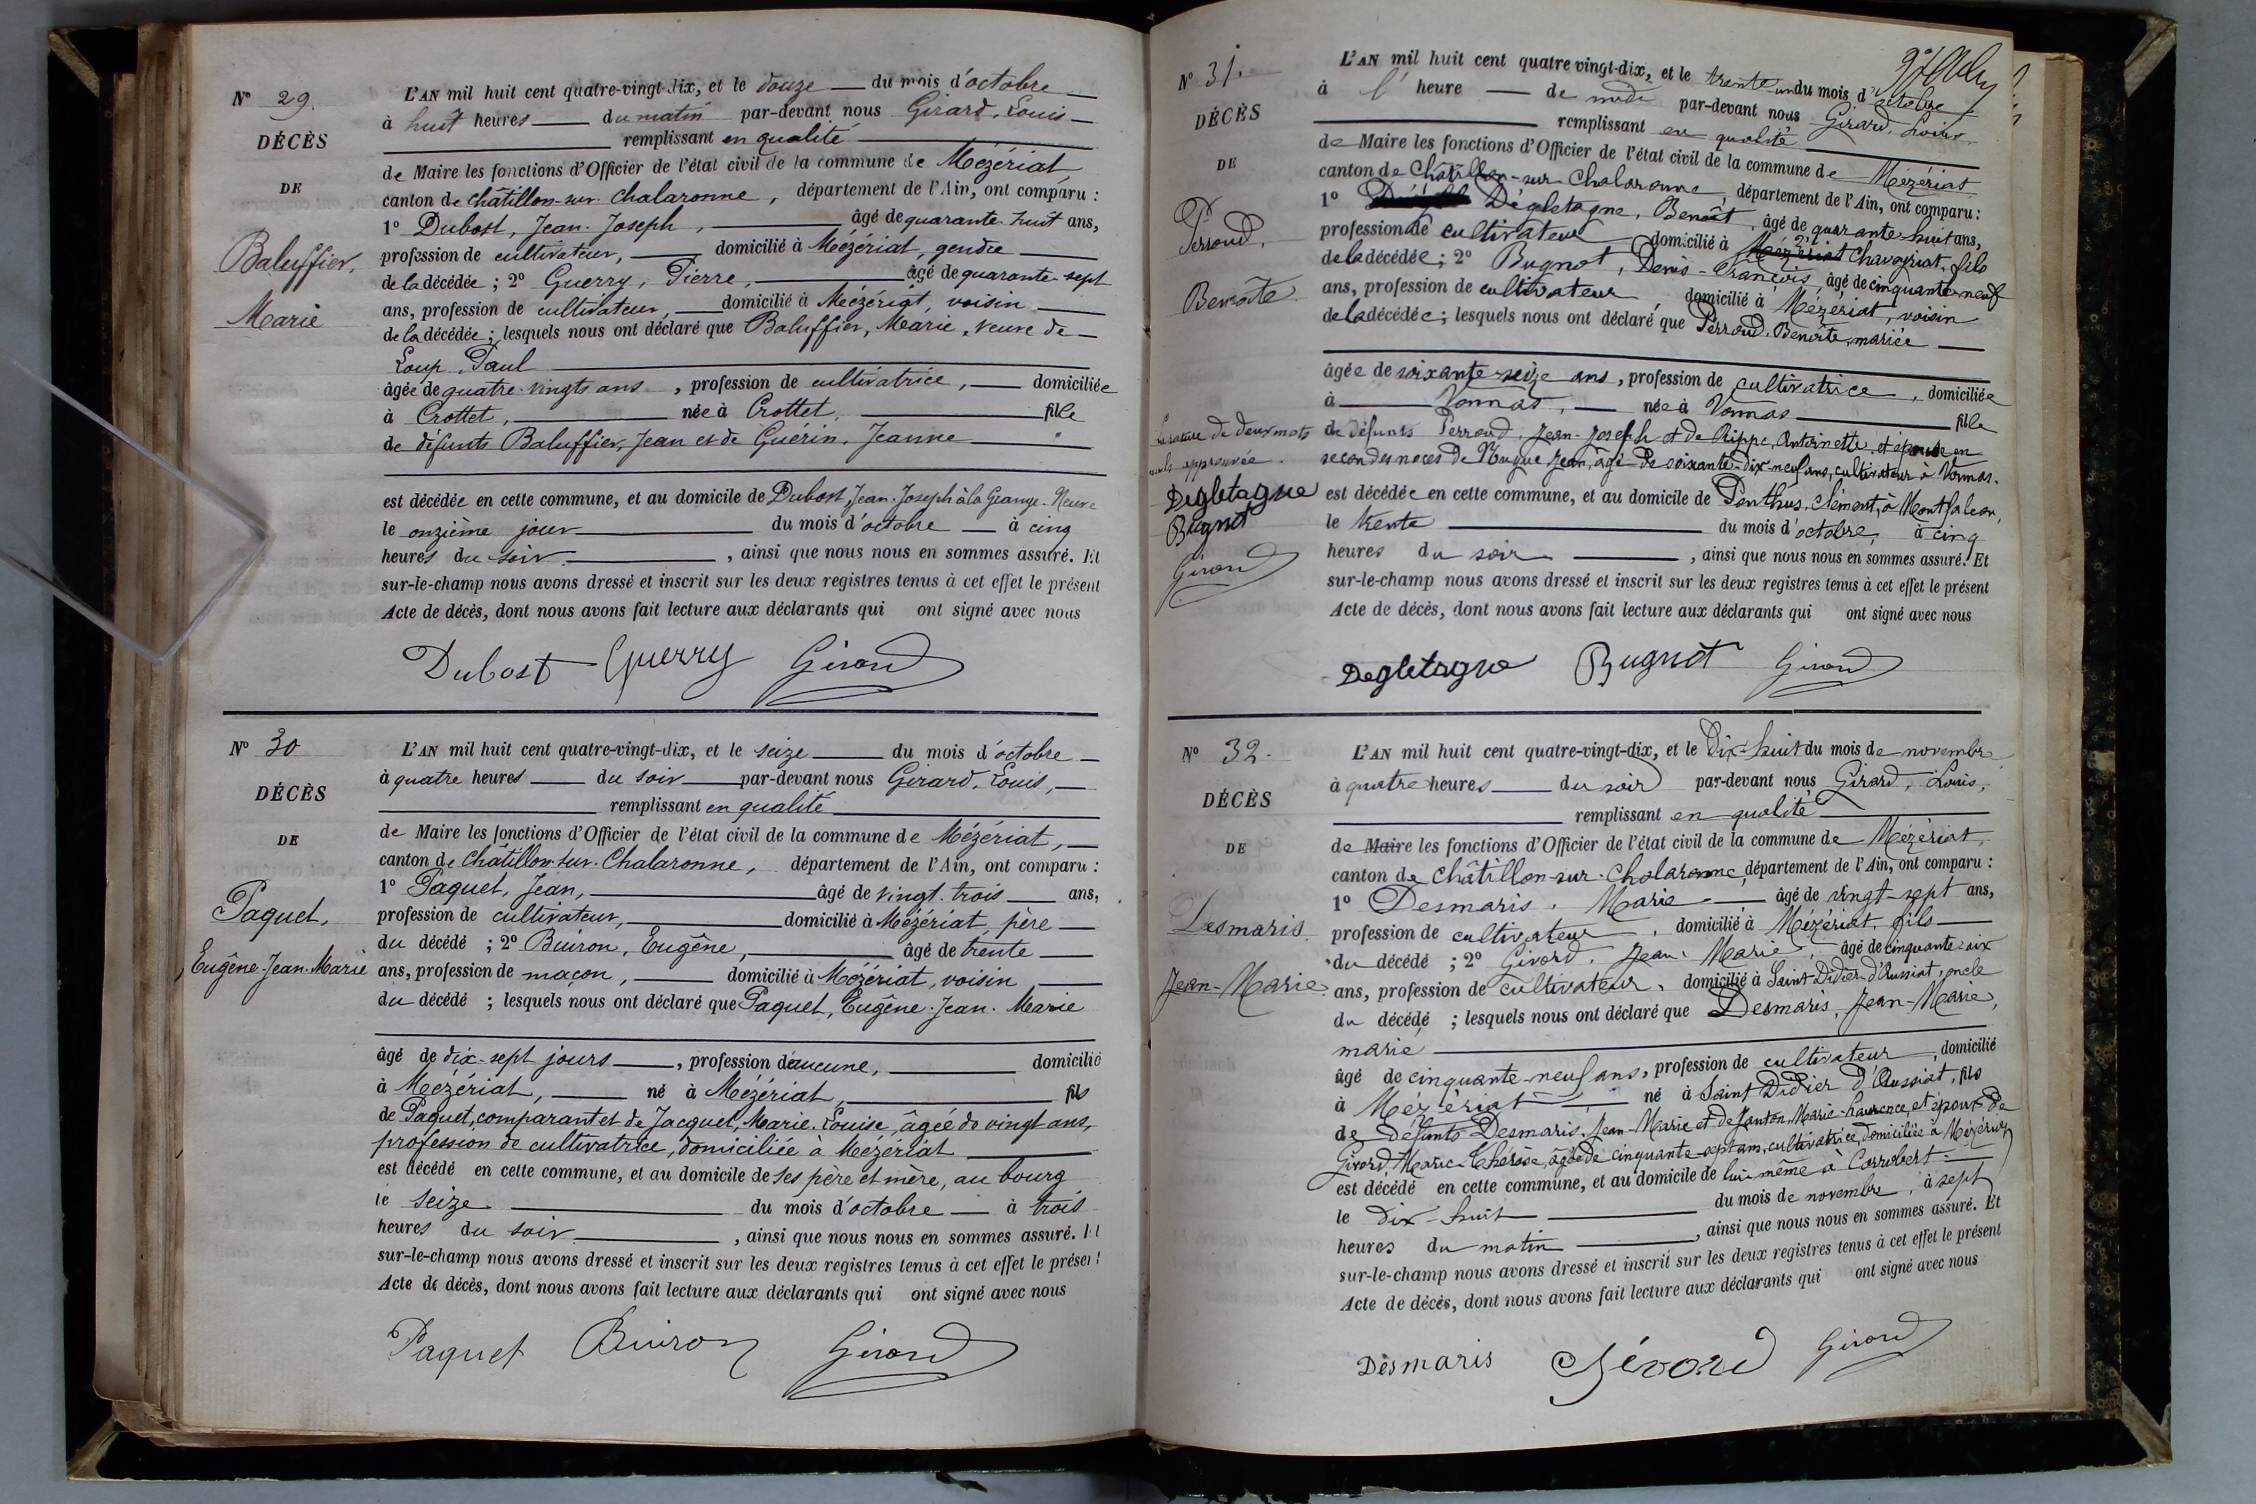 N° 29.
DÉCÈS
DE
Baluffier,
Marie
L'AN mil huit cent quatre-vingt-dix, et le douze du mois d'octobre
à huit heures du matin par-devant nous Girard, Louis
remplissant en qualité
de Maire les fonctions d'Officier de l'état civil de la commune de Mézériat,
canton de Châtillon-sur-Chalaronne, département de l'Ain, ont comparu :
1° Dubost, Jean-Joseph, âgé de quarante-huit ans,
profession de cultivateur, domicilié à Mézériat, gendre
de la décédée ; 2° Guerry, Pierre, âgé de quarante-sept
ans, profession de cultivateur, domicilié à Mézériat, voisin
de la décédée ; lesquels nous ont déclaré que Baluffier, Marie, veuve de
Loup, Paul
âgée de quatre-vingts ans, profession de cultivatrice, domiciliée
à Crottet, née à Crottet, fille
de défunts Baluffier, Jean et de Guérin, Jeanne
est décédée en cette commune, et au domicile de Dubost, Jean-Joseph à la Grange-Neuve
le onzième jour du mois d'octobre à cinq
heures du soir, ainsi que nous nous en sommes assuré. Et
sur-le-champ nous avons dressé et inscrit sur les deux registres tenus à cet effet le présent
Acte de décès, dont nous avons fait lecture aux déclarants qui ont signé avec nous
Dubost Guerry Girard
N° 30
DÉCÈS
DE
Paquet,
Eugène-Jean-Marie
L'AN mil huit cent quatre-vingt-dix, et le seize du mois d'octobre
à quatre heures du soir par-devant nous Girard, Louis,
remplissant en qualité
de Maire les fonctions d'Officier de l'état civil de la commune de Mézériat,
canton de Châtillon-sur-Chalaronne, département de l'Ain, ont comparu :
1° Paquet, Jean, âgé de vingt-trois ans,
profession de cultivateur, domicilié à Mézériat, père
du décédé ; 2° Buiron, Eugène, âgé de trente
ans, profession de maçon, domicilié à Mézériat, voisin
du décédé ; lesquels nous ont déclaré que Paquet, Eugène-Jean-Marie
âgé de dix-sept jours, profession d'aucune, domicilié
à Mézériat, né à Mézériat, fils
de Paquet, comparant et de Jacquet, Marie-Louise, âgée de vingt ans,
profession de cultivatrice, domiciliée à Mézériat
est décédé en cette commune, et au domicile de ses père et mère, au bourg
le seize du mois d'octobre à trois
heures du soir, ainsi que nous nous en sommes assuré. Et
sur-le-champ nous avons dressé et inscrit sur les deux registres tenus à cet effet le présent
Acte de décès, dont nous avons fait lecture aux déclarants qui ont signé avec nous
Paquet Buiron Girard
N° 31.
DÉCÈS
DE
Perroud,
Benoîte.
L'AN mil huit cent quatre-vingt-dix, et le trente-un du mois d'octobre
à l'heure de midi par-devant nous Girard, Louis
remplissant en qualité
de Maire les fonctions d'Officier de l'état civil de la commune de Mézériat,
canton de Châtillon-sur-Chalaronne, département de l'Ain, ont comparu :
1° Dégletagne, Benoît, âgé de quarante-huit ans,
profession de cultivateur domicilié à Mézériat Chavagnat, fils
de la décédée ; 2° Bugnot, Denis-François, âgé de cinquante-neuf
ans, profession de cultivateur, domicilié à Mézériat, voisin
de la décédée ; lesquels nous ont déclaré que Perroud, Benoîte, mariée
âgée de soixante-seize ans, profession de cultivatrice, domiciliée
à Vonnas, née à Vonnas fille
de défunts Perroud, Jean-Joseph et de Rippe, Antoinette, et épouse en
secondes noces de Nugue Jean, âgé de soixante-dix-neuf ans, cultivateur à Vonnas.
est décédée en cette commune, et au domicile de Penthus, Clément, à Montfalcon,
le trente du mois d'octobre, à cinq
heures du soir, ainsi que nous nous en sommes assuré. Et
sur-le-champ nous avons dressé et inscrit sur les deux registres tenus à cet effet le présent
Acte de décès, dont nous avons fait lecture aux déclarants qui ont signé avec nous
La rature de deux mots
nuls approuvée.
Degletagne
Bugnot
Girard
Degletagne Bugnot Girard
N° 32.
DÉCÈS
DE
Desmaris,
Jean-Marie.
L'AN mil huit cent quatre-vingt-dix, et le dix-huit du mois de novembre,
à quatre heures du soir par-devant nous Girard, Louis,
remplissant en qualité
de Maire les fonctions d'Officier de l'état civil de la commune de Mézériat,
canton de Châtillon-sur-Chalaronne, département de l'Ain, ont comparu :
1° Desmaris, Marie âgé de vingt-sept ans,
profession de cultivateur, domicilié à Mézériat, fils
du décédé ; 2° Givord, Jean-Marie, âgé de cinquante-six
ans, profession de cultivateur, domicilié à Saint-Didier-d'Aussiat, oncle
du décédé ; lesquels nous ont déclaré que Desmaris, Jean-Marie,
marié
âgé de cinquante-neuf ans, profession de cultivateur, domicilié
à Mézériat, né à Saint Didier d'Aussiat, fils
de défunts Desmaris, Jean-Marie et de Janton, Marie-Laurence, et époux de
Givord, Marie-Thérèse, âgée de cinquante-sept ans, cultivatrice, domiciliée à Mézériat,
est décédé en cette commune, et au domicile de lui-même à Corrobert
le dix-huit du mois de novembre, à sept
heures du matin, ainsi que nous nous en sommes assuré. Et
sur-le-champ nous avons dressé et inscrit sur les deux registres tenus à cet effet le présent
Acte de décès, dont nous avons fait lecture aux déclarants qui ont signé avec nous
Desmaris Gévord Girard